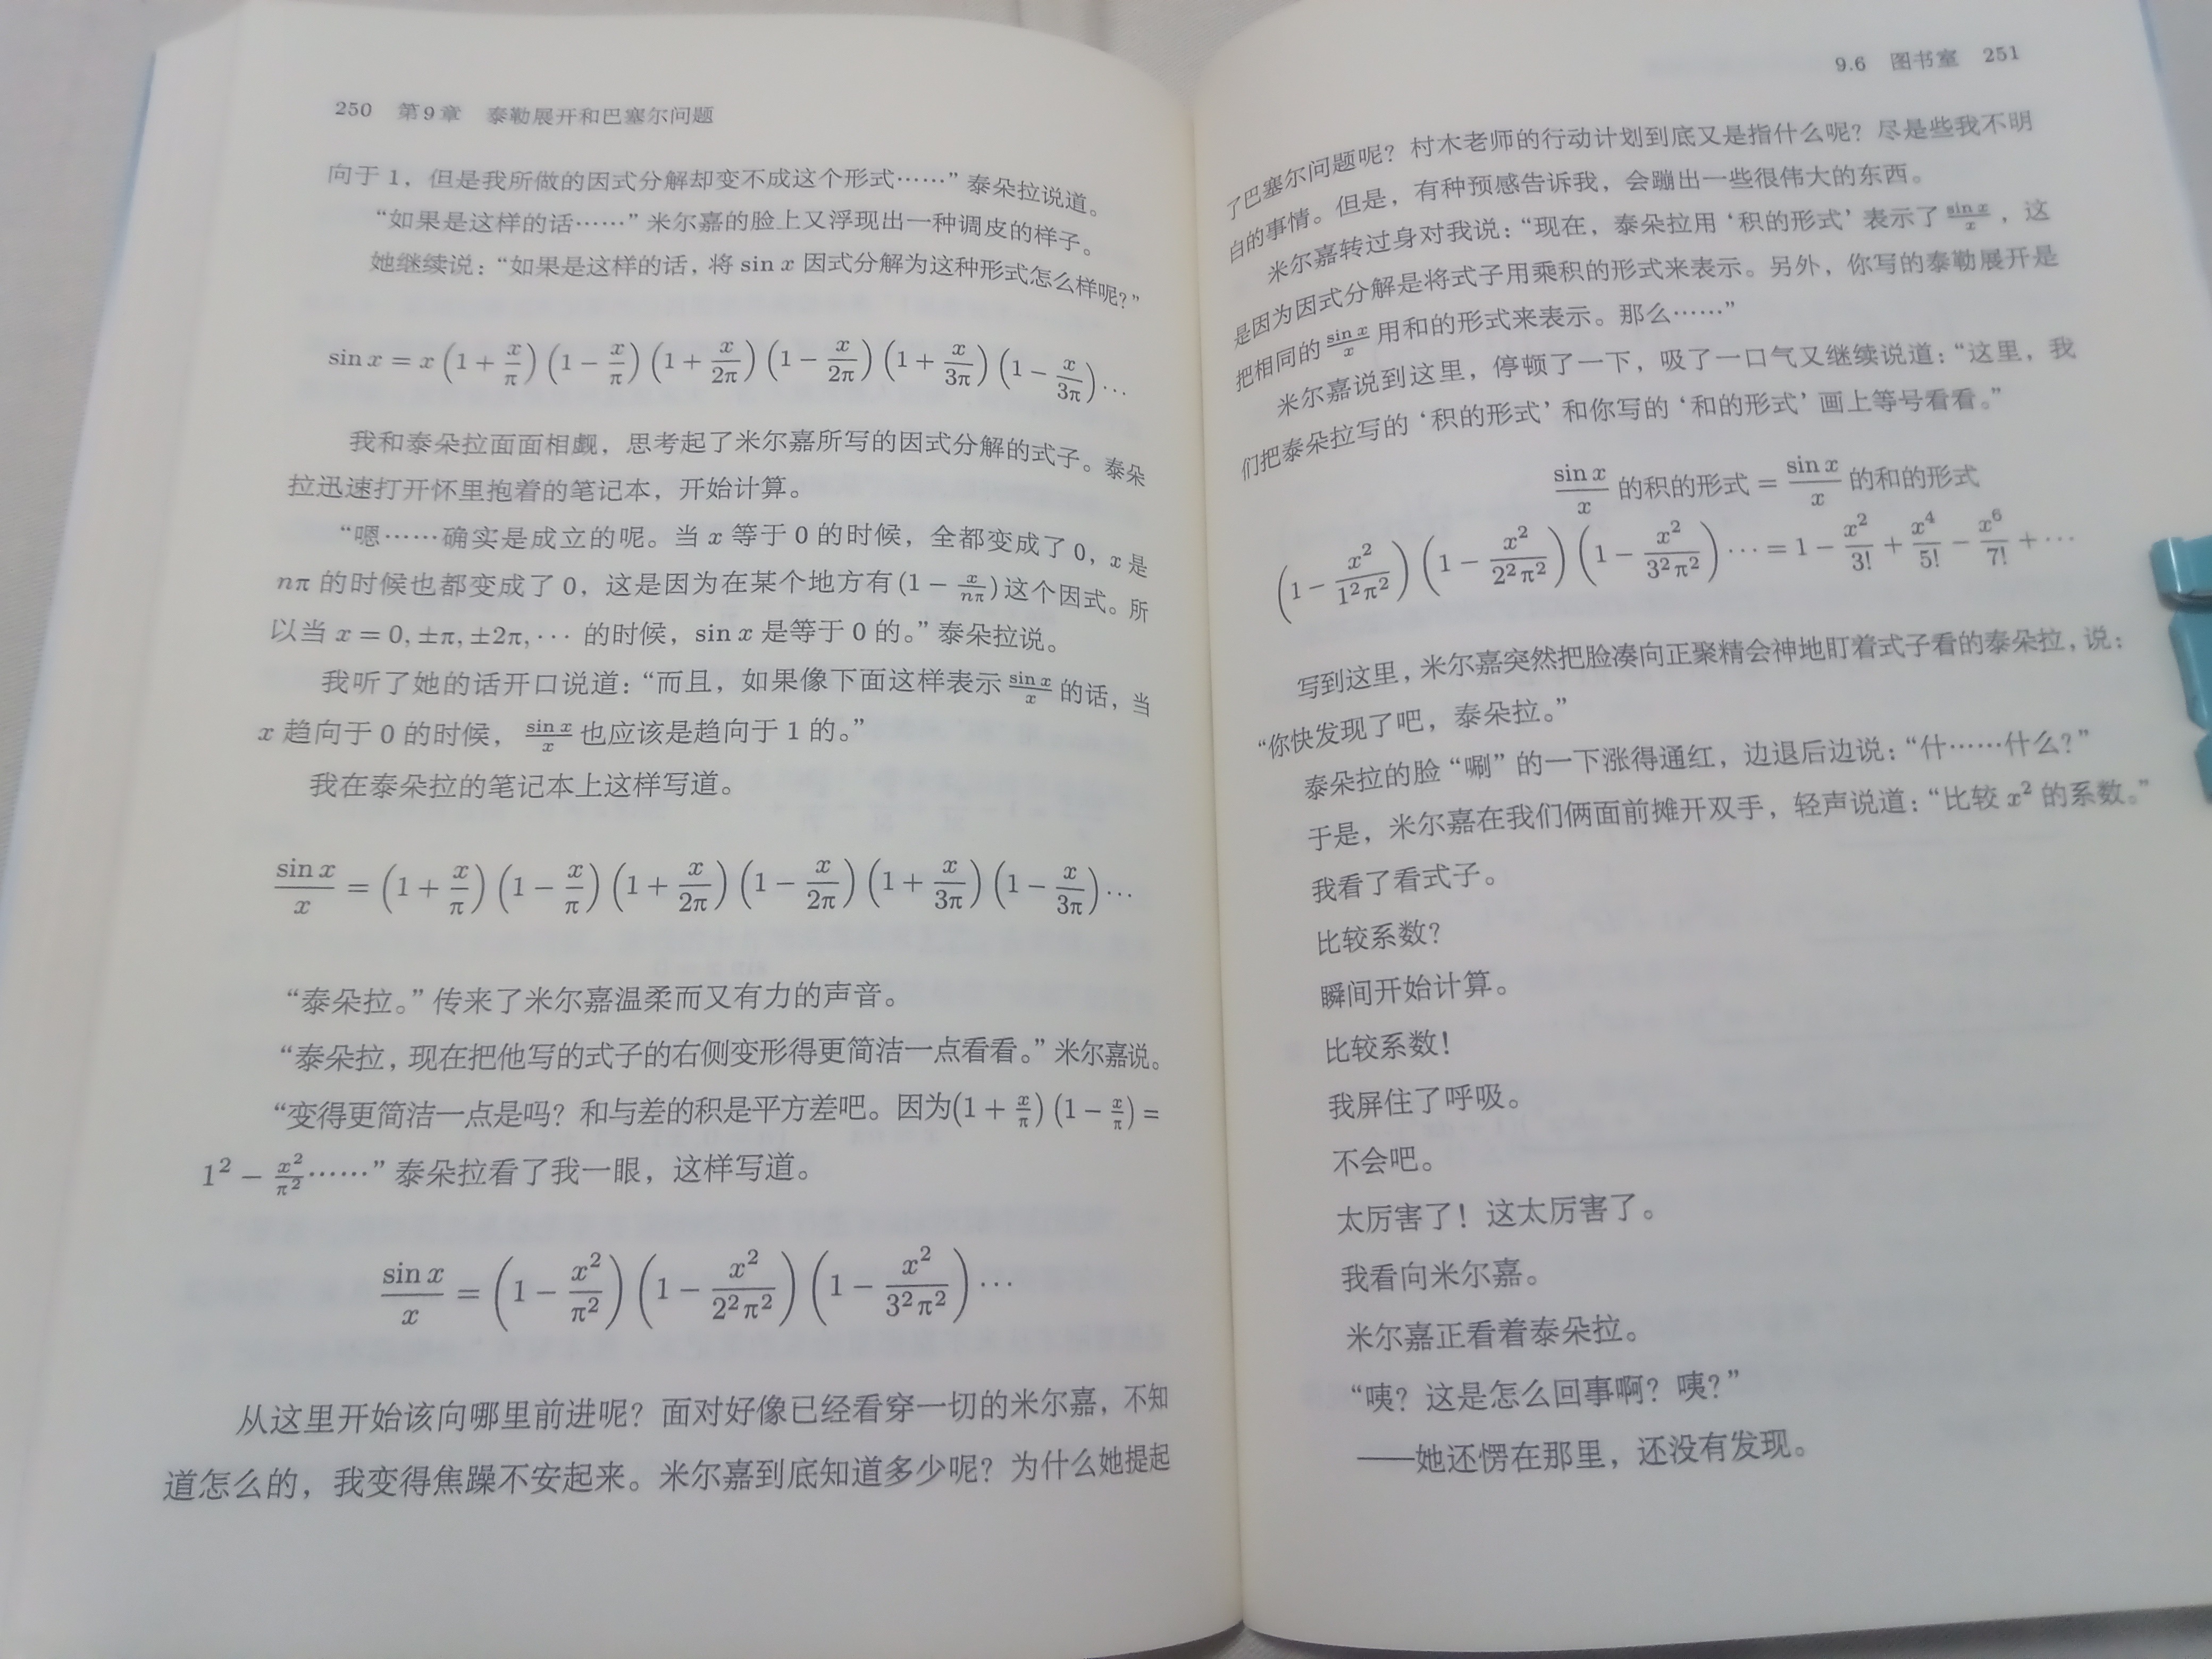 250 第9章 泰勒展开和巴塞尔问题
向于 1，但是我所做的因式分解却变不成这个形式……”泰朵拉说道。
“如果是这样的话……”米尔嘉的脸上又浮现出一种调皮的样子。
她继续说：“如果是这样的话，将 sin x 因式分解为这种形式怎么样呢？”
sin x = x (1 + x/π) (1 − x/π) (1 + x/2π) (1 − x/2π) (1 + x/3π) (1 − x/3π) ···
我和泰朵拉面面相觑，思考起了米尔嘉所写的因式分解的式子。泰朵
拉迅速打开怀里抱着的笔记本，开始计算。
“嗯……确实是成立的呢。当 x 等于 0 的时候，全都变成了 0，x 是
nπ 的时候也都变成了 0，这是因为在某个地方有 (1 − x/nπ) 这个因式。所
以当 x = 0, ±π, ±2π, ··· 的时候，sin x 是等于 0 的。”泰朵拉说。
我听了她的话开口说道：“而且，如果像下面这样表示 sin x/x 的话，当
x 趋向于 0 的时候，sin x/x 也应该是趋向于 1 的。”
我在泰朵拉的笔记本上这样写道。
sin x/x = (1 + x/π) (1 − x/π) (1 + x/2π) (1 − x/2π) (1 + x/3π) (1 − x/3π) ···
“泰朵拉。”传来了米尔嘉温柔而又有力的声音。
“泰朵拉，现在把他写的式子的右侧变形得更简洁一点看看。”米尔嘉说。
“变得更简洁一点是吗？和与差的积是平方差吧。因为(1 + x/π) (1 − x/π) =
1² − x²/π² ……”泰朵拉看了我一眼，这样写道。
sin x/x = (1 − x²/π²) (1 − x²/2²π²) (1 − x²/3²π²) ···
从这里开始该向哪里前进呢？面对好像已经看穿一切的米尔嘉，不知
道怎么的，我变得焦躁不安起来。米尔嘉到底知道多少呢？为什么她提起
9.6 图书室 251
了巴塞尔问题呢？村木老师的行动计划到底又是指什么呢？尽是些我不明
白的事情。但是，有种预感告诉我，会蹦出一些很伟大的东西。
米尔嘉转过身对我说：“现在，泰朵拉用‘积的形式’表示了 sin x/x，这
是因为因式分解是将式子用乘积的形式来表示。另外，你写的泰勒展开是
把相同的 sin x/x 用和的形式来表示。那么……”
米尔嘉说到这里，停顿了一下，吸了一口气又继续说道：“这里，我
们把泰朵拉写的‘积的形式’和你写的‘和的形式’画上等号看看。”
sin x/x 的积的形式 = sin x/x 的和的形式
(1 − x²/1²π²) (1 − x²/2²π²) (1 − x²/3²π²) ··· = 1 − x²/3! + x⁴/5! − x⁶/7! + ···
写到这里，米尔嘉突然把脸凑向正聚精会神地盯着式子看的泰朵拉，说：
“你快发现了吧，泰朵拉。”
泰朵拉的脸“唰”的一下涨得通红，边退后边说：“什……什么？”
于是，米尔嘉在我们俩面前摊开双手，轻声说道：“比较 x² 的系数。”
我看了看式子。
比较系数？
瞬间开始计算。
比较系数！
我屏住了呼吸。
不会吧。
太厉害了！这太厉害了。
我看向米尔嘉。
米尔嘉正看着泰朵拉。
“咦？这是怎么回事啊？咦？”
——她还愣在那里，还没有发现。